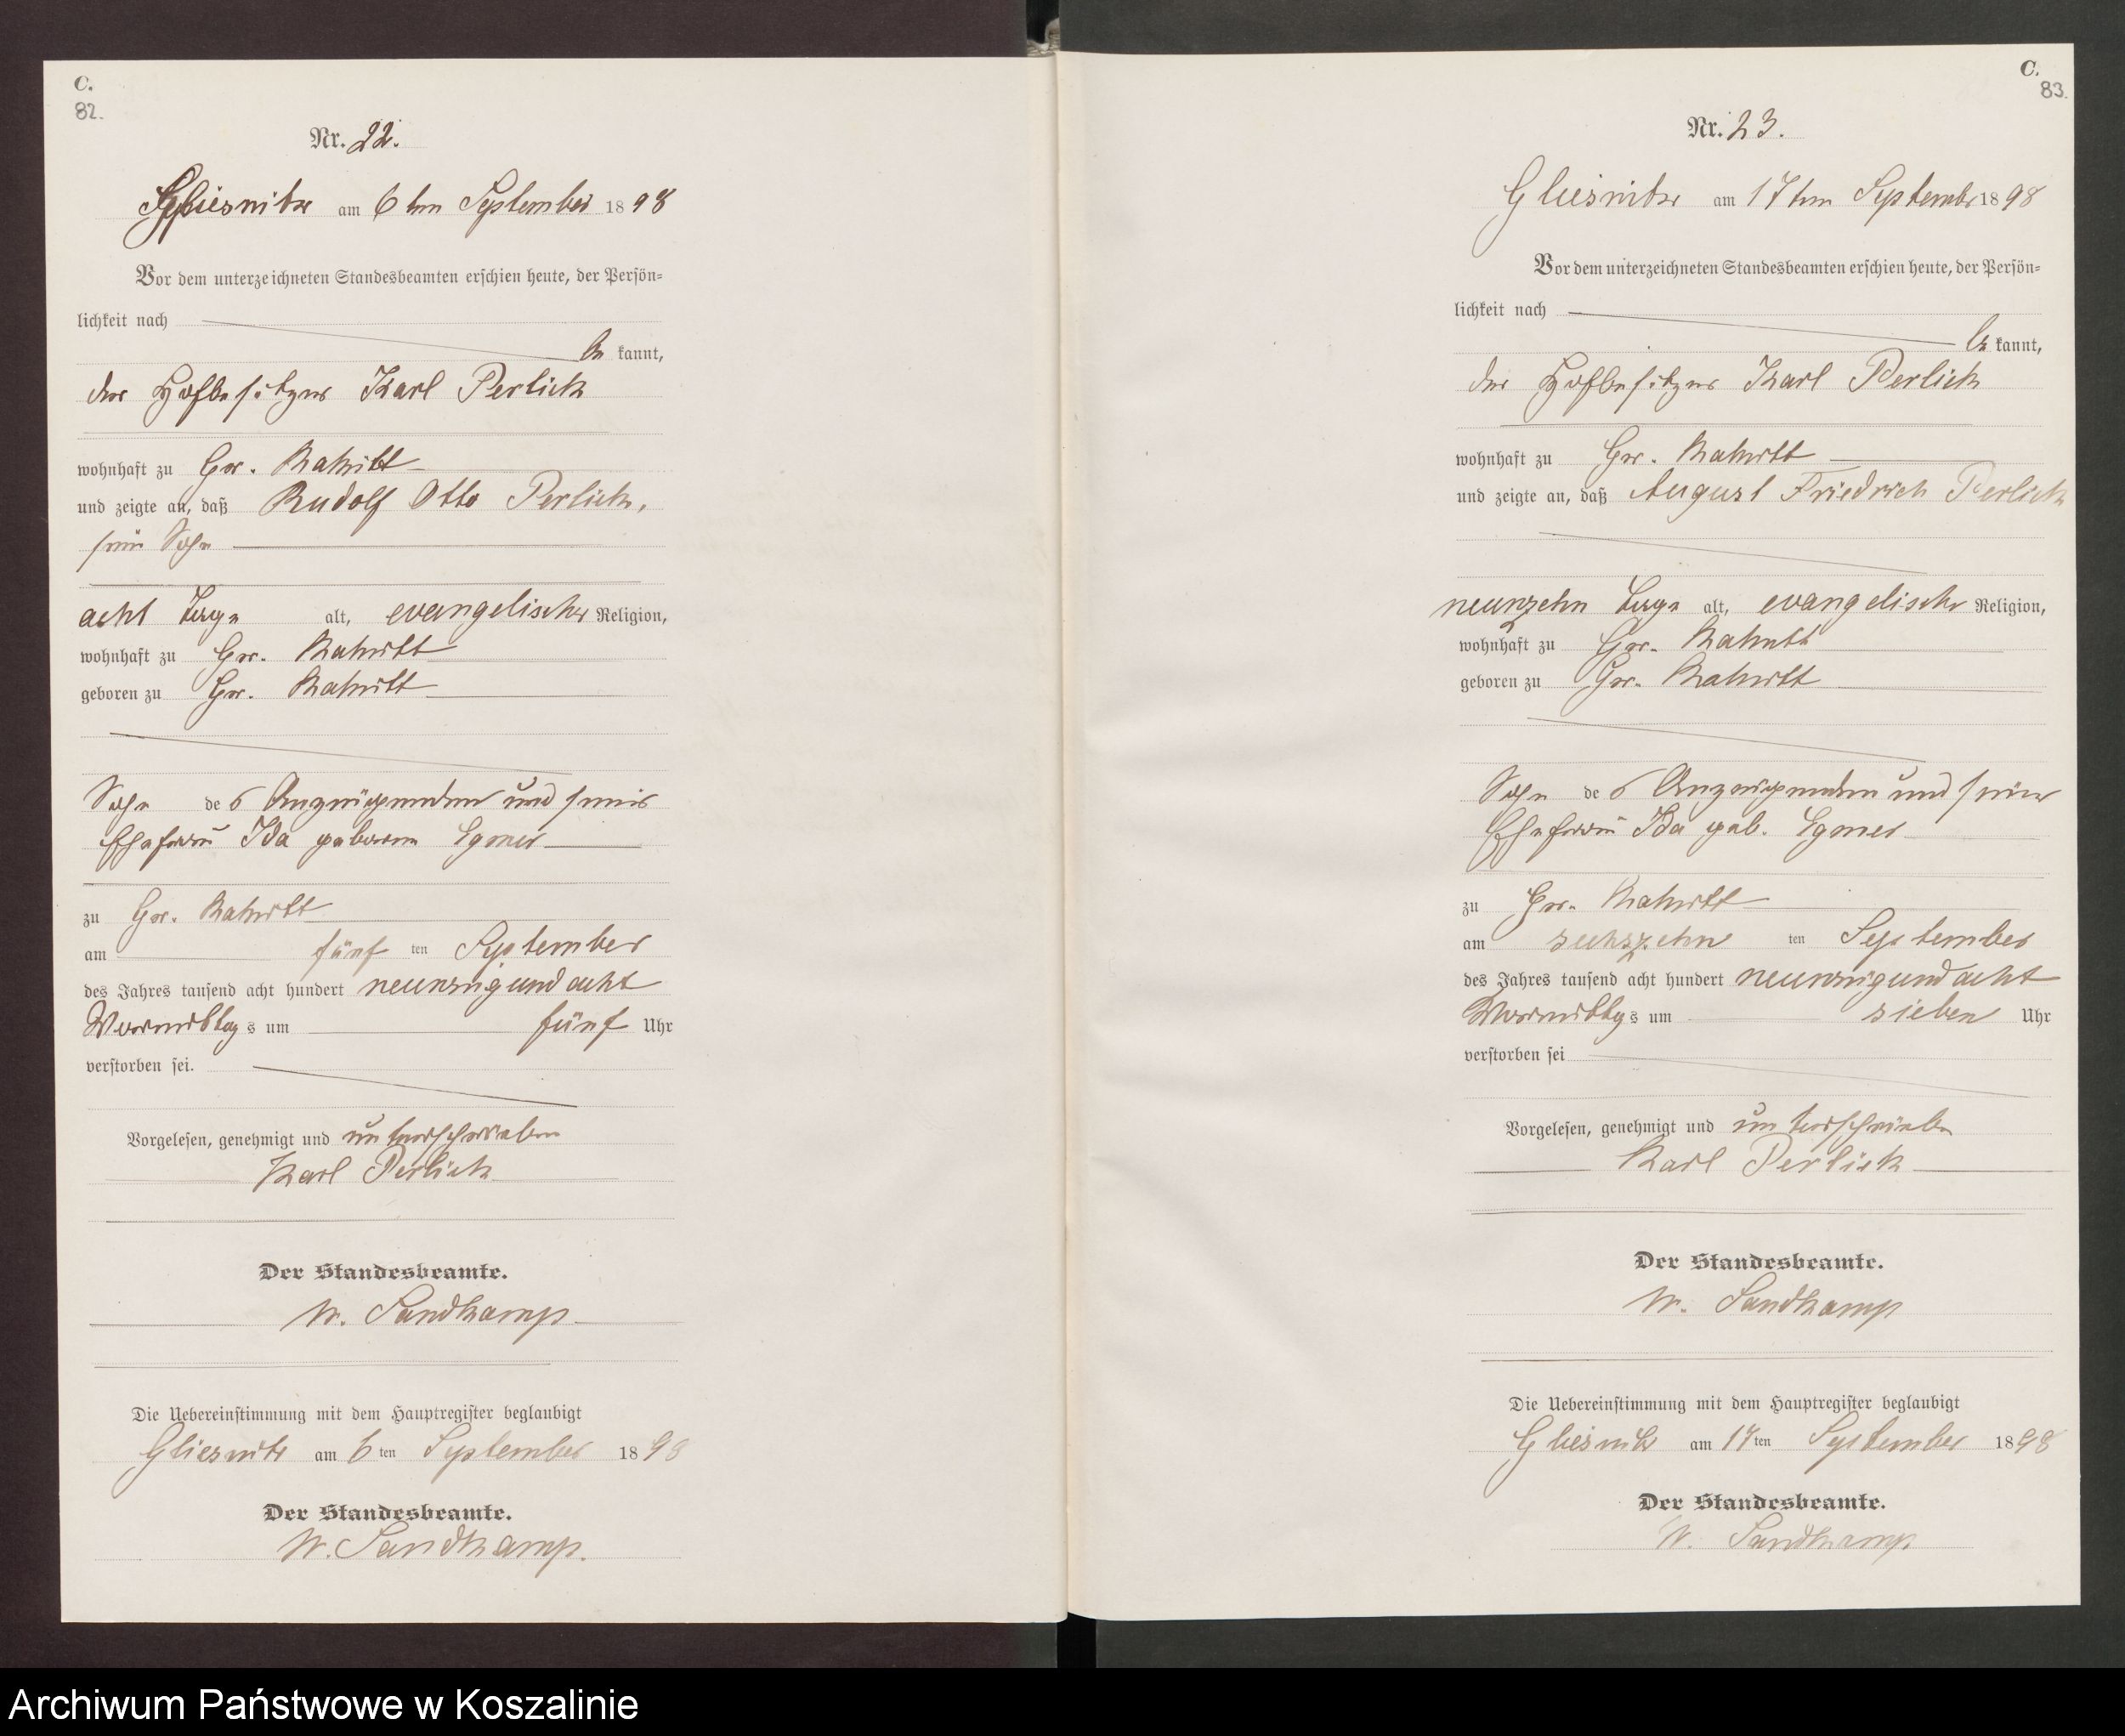 C.
82.
Nr. 22.
Gliesnitz am 6ten September 1898
Vor dem unterzeichneten Standesbeamten erschien heute, der Persön-
lichkeit nach
be kannt,
der Hofbesitzer Karl Perlick
wohnhaft zu Gr. Rakitt
und zeigte an, daß Rudolf Otto Perlick,
sein Sohn
acht Tage alt, evangelischer Religion,
wohnhaft zu Gr. Rakitt
geboren zu Gr. Rakitt
Sohn des Anzeigenden und seiner
Ehefrau Ida geborene Egmer
zu Gr. Rakitt
am fünf ten September
des Jahres tausend acht hundert neunzig und acht
Vormittags um fünf Uhr
verstorben sei.
Vorgelesen, genehmigt und unterschrieben
Karl Perlick
Der Standesbeamte.
W. Sandkamp
Die Uebereinstimmung mit dem Hauptregister beglaubigt
Gliesnitz am 6ten September 1898
Der Standesbeamte.
W. Sandkamp.
C.
83.
Nr. 23.
Gliesnitz am 17ten September 1898
Vor dem unterzeichneten Standesbeamten erschien heute, der Persön-
lichkeit nach
be kannt,
der Hofbesitzer Karl Perlick
wohnhaft zu Gr. Rakitt
und zeigte an, daß August Friedrich Perlick
neunzehn Tage alt, evangelischer Religion,
wohnhaft zu Gr. Rakitt
geboren zu Gr. Rakitt
Sohn des Anzeigenden und seiner
Ehefrau Ida geb. Egmer
zu Gr. Rakitt
am sechszehn ten September
des Jahres tausend acht hundert neunzig und acht
Vormittags um sieben Uhr
verstorben sei
Vorgelesen, genehmigt und unterschrieben
Karl Perlick
Der Standesbeamte.
W. Sandkamp
Die Uebereinstimmung mit dem Hauptregister beglaubigt
Gliesnitz am 17ten September 1898
Der Standesbeamte.
W. Sandkamp.
Archiwum Państwowe w Koszalinie